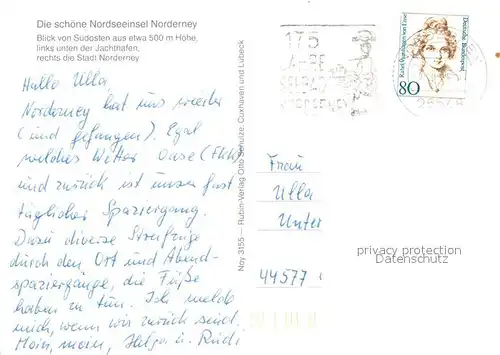 Die schöne Nordseeinsel Norderney
Blick von Südosten aus etwa 500 m Höhe,
links unten der Jachthafen,
rechts die Stadt Norderney
Hallo Ulla,
Norderney hat uns wieder
(und gefangen). Egal
welches Wetter Oase (FKK)
und zurück ist unser fast
täglicher Spaziergang.
Dazu diverse Streifzüge
durch den Ort und Abend-
spaziergänge, die Füße
haben zu tun. Ich melde
mich, wenn wir zurück sind.
Moin, moin, Helga u. Rudi
Noy 3155 — Rubin-Verlag Otto Schulze, Cuxhaven und Lübeck
175
JAHRE
Rahel Varnhagen von Ense
Deutsche Bundespost
80
Frau
Ulla
Unter
44577
privacy protection
Datenschutz